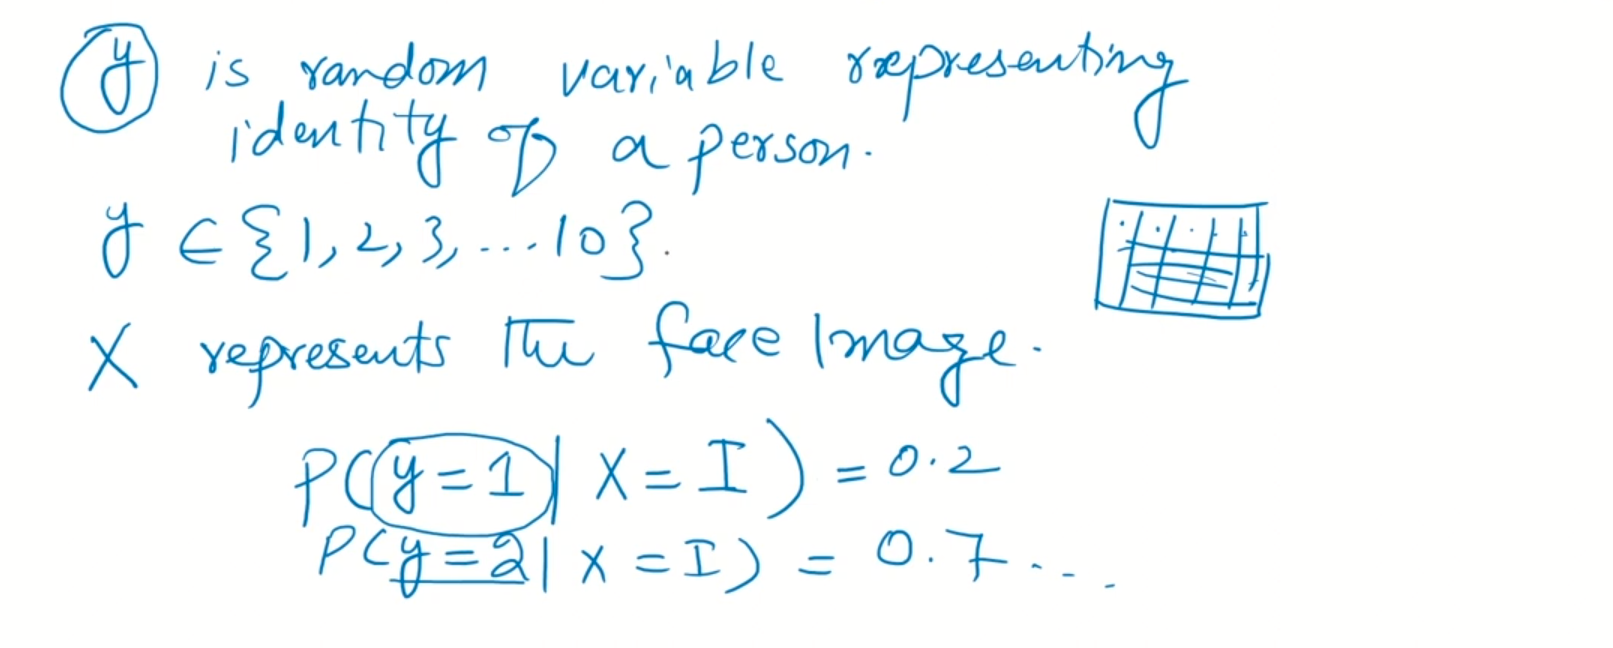 y is random variable representing
identity of a person.
y ∈ {1, 2, 3, ... 10}.
X represents the face Image.
P(y = 1 | X = I) = 0.2
P(y = 2 | X = I) = 0.7 ...